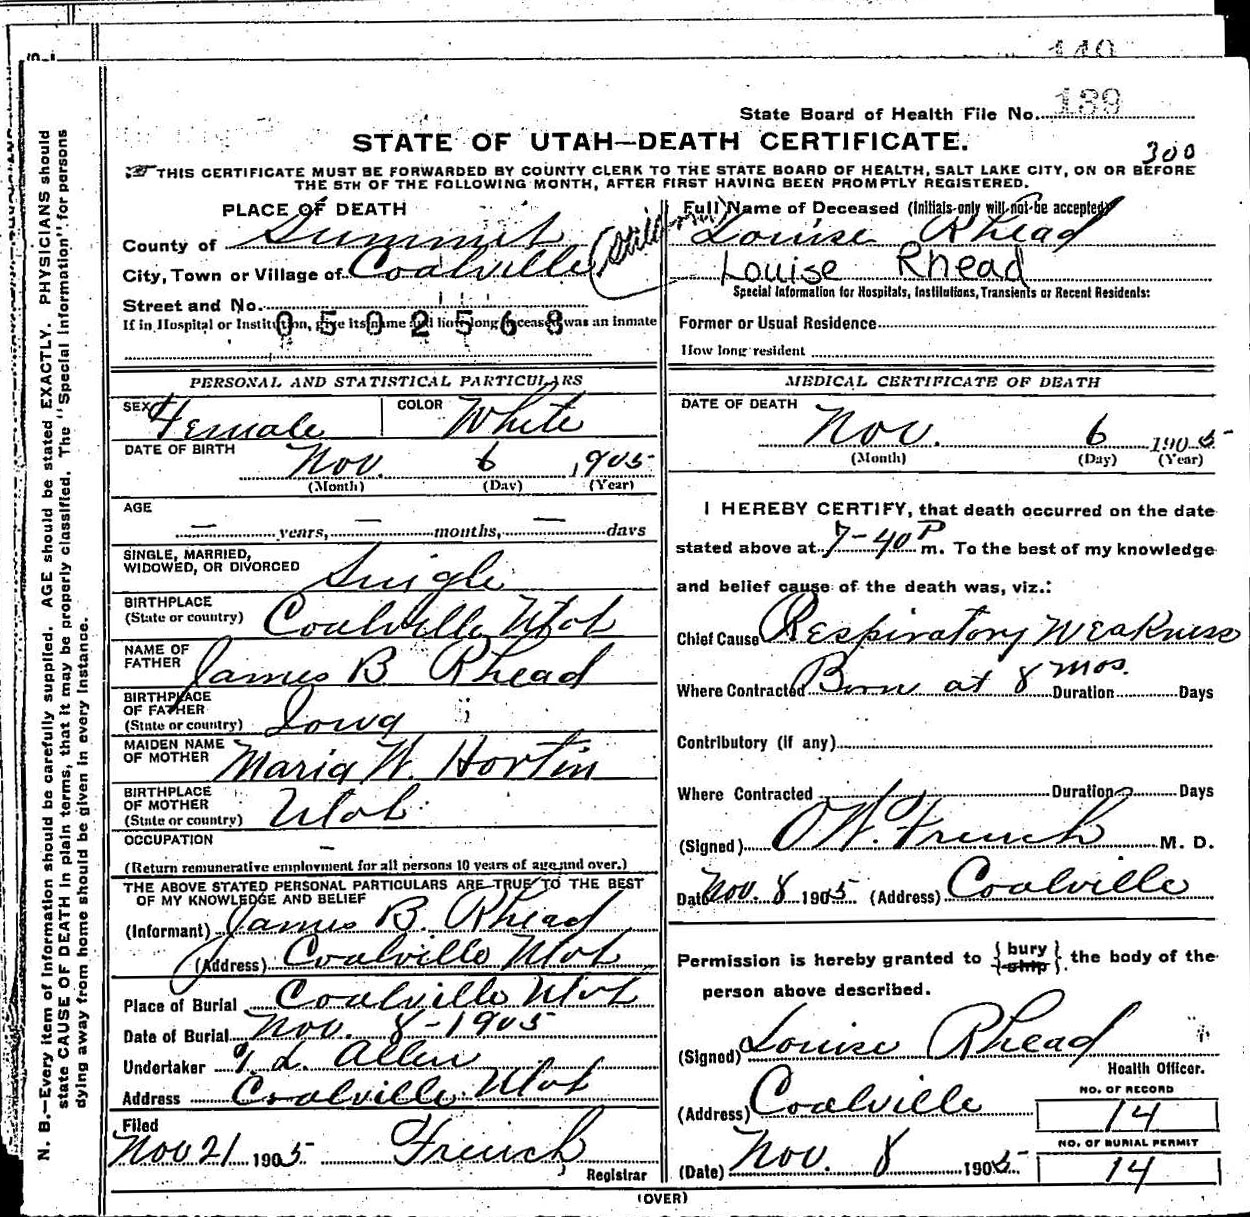 140
State Board of Health File No. 139
STATE OF UTAH—DEATH CERTIFICATE.
300
THIS CERTIFICATE MUST BE FORWARDED BY COUNTY CLERK TO THE STATE BOARD OF HEALTH, SALT LAKE CITY, ON OR BEFORE
THE 5TH OF THE FOLLOWING MONTH, AFTER FIRST HAVING BEEN PROMPTLY REGISTERED.
PLACE OF DEATH
County of Summit
City, Town or Village of Coalville
Street and No.
If in Hospital or Institution, give its name and how long deceased was an inmate
0502568
(Still
Full Name of Deceased (Initials only will not be accepted)
Louise Rhead
Louise Rhead
Special Information for Hospitals, Institutions, Transients or Recent Residents:
Former or Usual Residence
How long resident
PERSONAL AND STATISTICAL PARTICULARS
SEX Female COLOR White
DATE OF BIRTH Nov. 6 1905
(Month) (Day) (Year)
AGE
— years, — months, — days
SINGLE, MARRIED,
WIDOWED, OR DIVORCED Single
BIRTHPLACE
(State or country) Coalville Utah
NAME OF
FATHER James B Rhead
BIRTHPLACE
OF FATHER
(State or country) Iowa
MAIDEN NAME
OF MOTHER Maria W. Hortin
BIRTHPLACE
OF MOTHER
(State or country) Utah
OCCUPATION —
(Return remunerative employment for all persons 10 years of age and over.)
THE ABOVE STATED PERSONAL PARTICULARS ARE TRUE TO THE BEST
OF MY KNOWLEDGE AND BELIEF
(Informant) James B. Rhead
(Address) Coalville Utah
Place of Burial Coalville Utah
Date of Burial Nov. 8-1905
Undertaker L. Allen
Address Coalville Utah
Filed
Nov 21 1905 French
Registrar
MEDICAL CERTIFICATE OF DEATH
DATE OF DEATH
Nov. 6 1905
(Month) (Day) (Year)
I HEREBY CERTIFY, that death occurred on the date
stated above at 7-40 P m. To the best of my knowledge
and belief cause of the death was, viz.:
Chief Cause Respiratory Weakness
Where Contracted Born at 8 mos. Duration Days
Contributory (if any)
Where Contracted Duration Days
(Signed) O W. French M. D.
Date Nov. 8 1905 (Address) Coalville
Permission is hereby granted to {bury ship} the body of the
person above described.
(Signed) Louise Rhead
Health Officer.
(Address) Coalville
(Date) Nov. 8 1905
NO. OF RECORD
14
NO. OF BURIAL PERMIT
14
(OVER)
N. B.—Every item of information should be carefully supplied. AGE should be stated EXACTLY. PHYSICIANS should
state CAUSE OF DEATH in plain terms, that it may be properly classified. The "Special Information" for persons
dying away from home should be given in every instance.